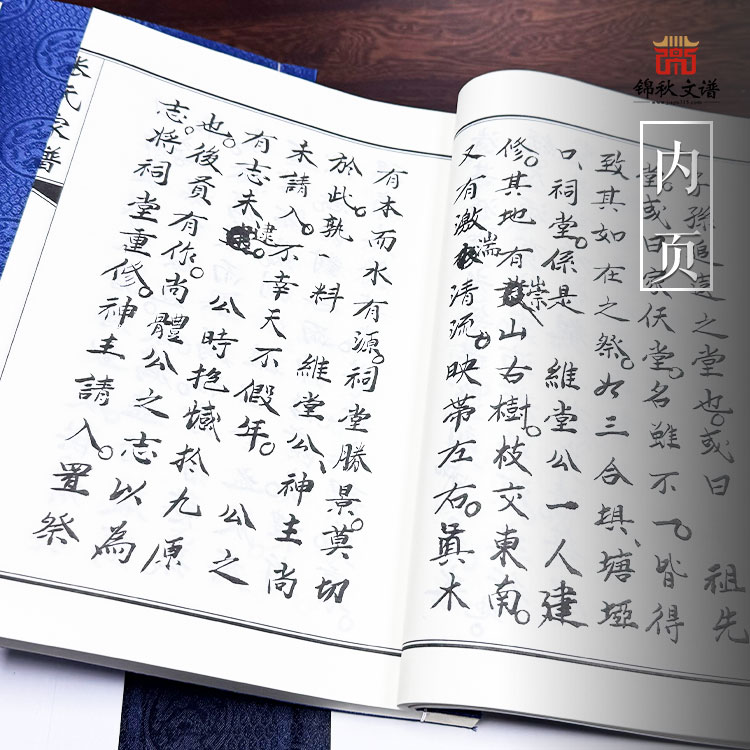 锦秋文谱
内页
子孫追遠之堂也。或曰 祖先
堂。或曰家仸堂。名雖不一。皆得
致其如在之祭。如三合垻、塘埡
口、祠堂。係是 維堂公一人建
修。其地有崇山古樹。枝交東南。
又有激湍清流。映帶左右。眞木
有本而水有源。祠堂勝景。莫切
於此。孰一料 維堂公、神主尚
未請入。不幸天不假年。 公之
有志未逮。 公時抱憾於九原
也。後員有你。尚體公之志以為
志。將祠堂重修。神主請入。置祭
氏家譜